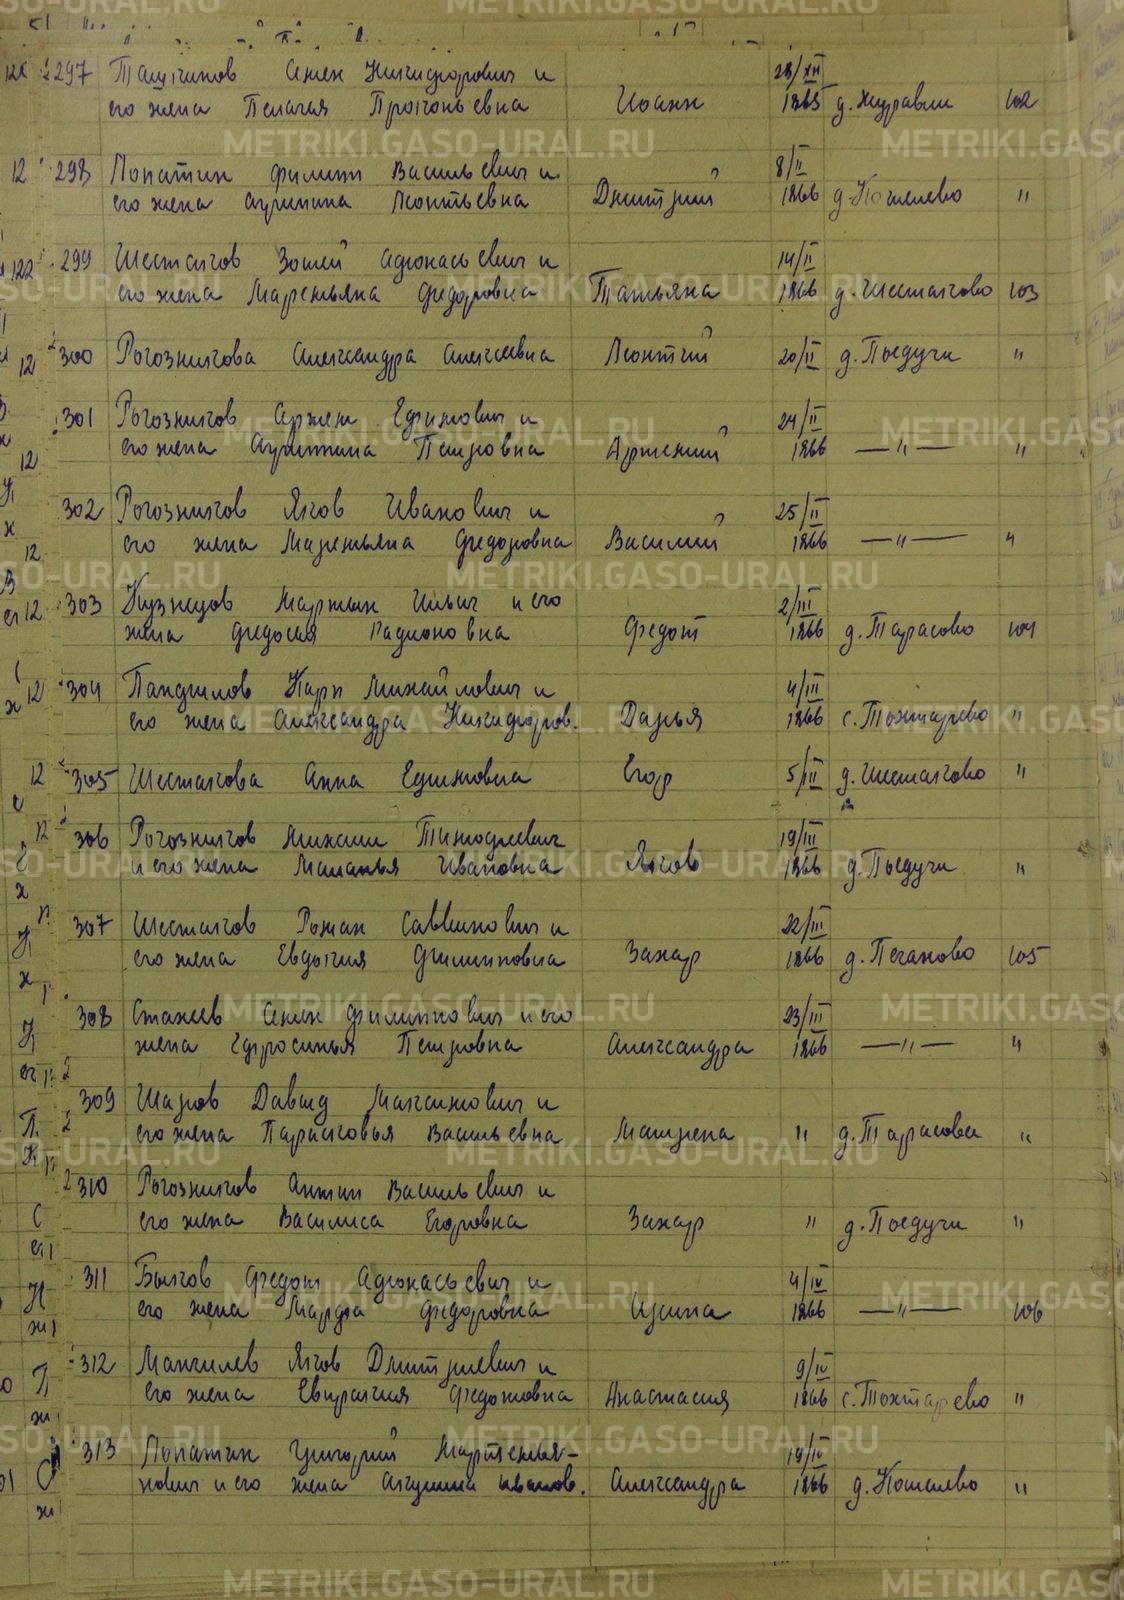 297 Ташкинов Семен Никифорович и 28/XII
его жена Пелагея Прокопьевна Иоанн 1865 д. Журавли 102
298 Лопатин Филипп Васильевич и 8/II
его жена Агрипина Леонтьевна Дмитрий 1866 д. Кошелево "
299 Шестаков Зотей Афонасьевич и 14/II
его жена Маремьяна Федоровна Татьяна 1866 д. Шестаково 103
300 Рогозникова Александра Алексеевна Леонтий 20/II д. Поедуги "
301 Рогозников Артем Ефимович и 24/II
его жена Агриппина Петровна Артемий 1866 — " — "
302 Рогозников Яков Иванович и 25/II
его жена Маремьяна Федоровна Василий 1866 — " — "
303 Кузнецов Мартын Ильич и его 2/III
жена Федосия Радионовна Федот 1866 д. Тарасово 104
304 Панфилов Карп Михайлович и 4/III
его жена Александра Никифоров. Дарья 1866 с. Тохтарево "
305 Шестакова Анна Ефимовна Егор 5/III д. Шестаково "
306 Рогозников Михаил Тимофеевич 19/III
и его жена Маланья Ивановна Яков 1866 д. Поедуги "
307 Шестаков Роман Саввинович и 22/III
его жена Евдокия Филипповна Захар 1866 д. Пеганово 105
308 Стахеев Семен Филиппович и его 23/III
жена Ефросинья Петровна Александра 1866 — " — "
309 Шаров Давыд Максимович и
его жена Парасковья Васильевна Матрена " д. Тарасово "
310 Рогозников Антип Васильевич и
его жена Василиса Егоровна Захар " д. Поедуги "
311 Быков Федот Афонасьевич и 4/IV
его жена Марфа Федоровна Ирина 1866 — " — 106
312 Мангилев Яков Дмитриевич и 9/IV
его жена Евпраксия Федотовна Анастасия 1866 с. Тохтарево "
313 Лопатин Григорий Мартемья- 19/IV
нович и его жена Акулина Иванов. Александра 1866 д. Кошелево "
METRIKI.GASO-URAL.RU